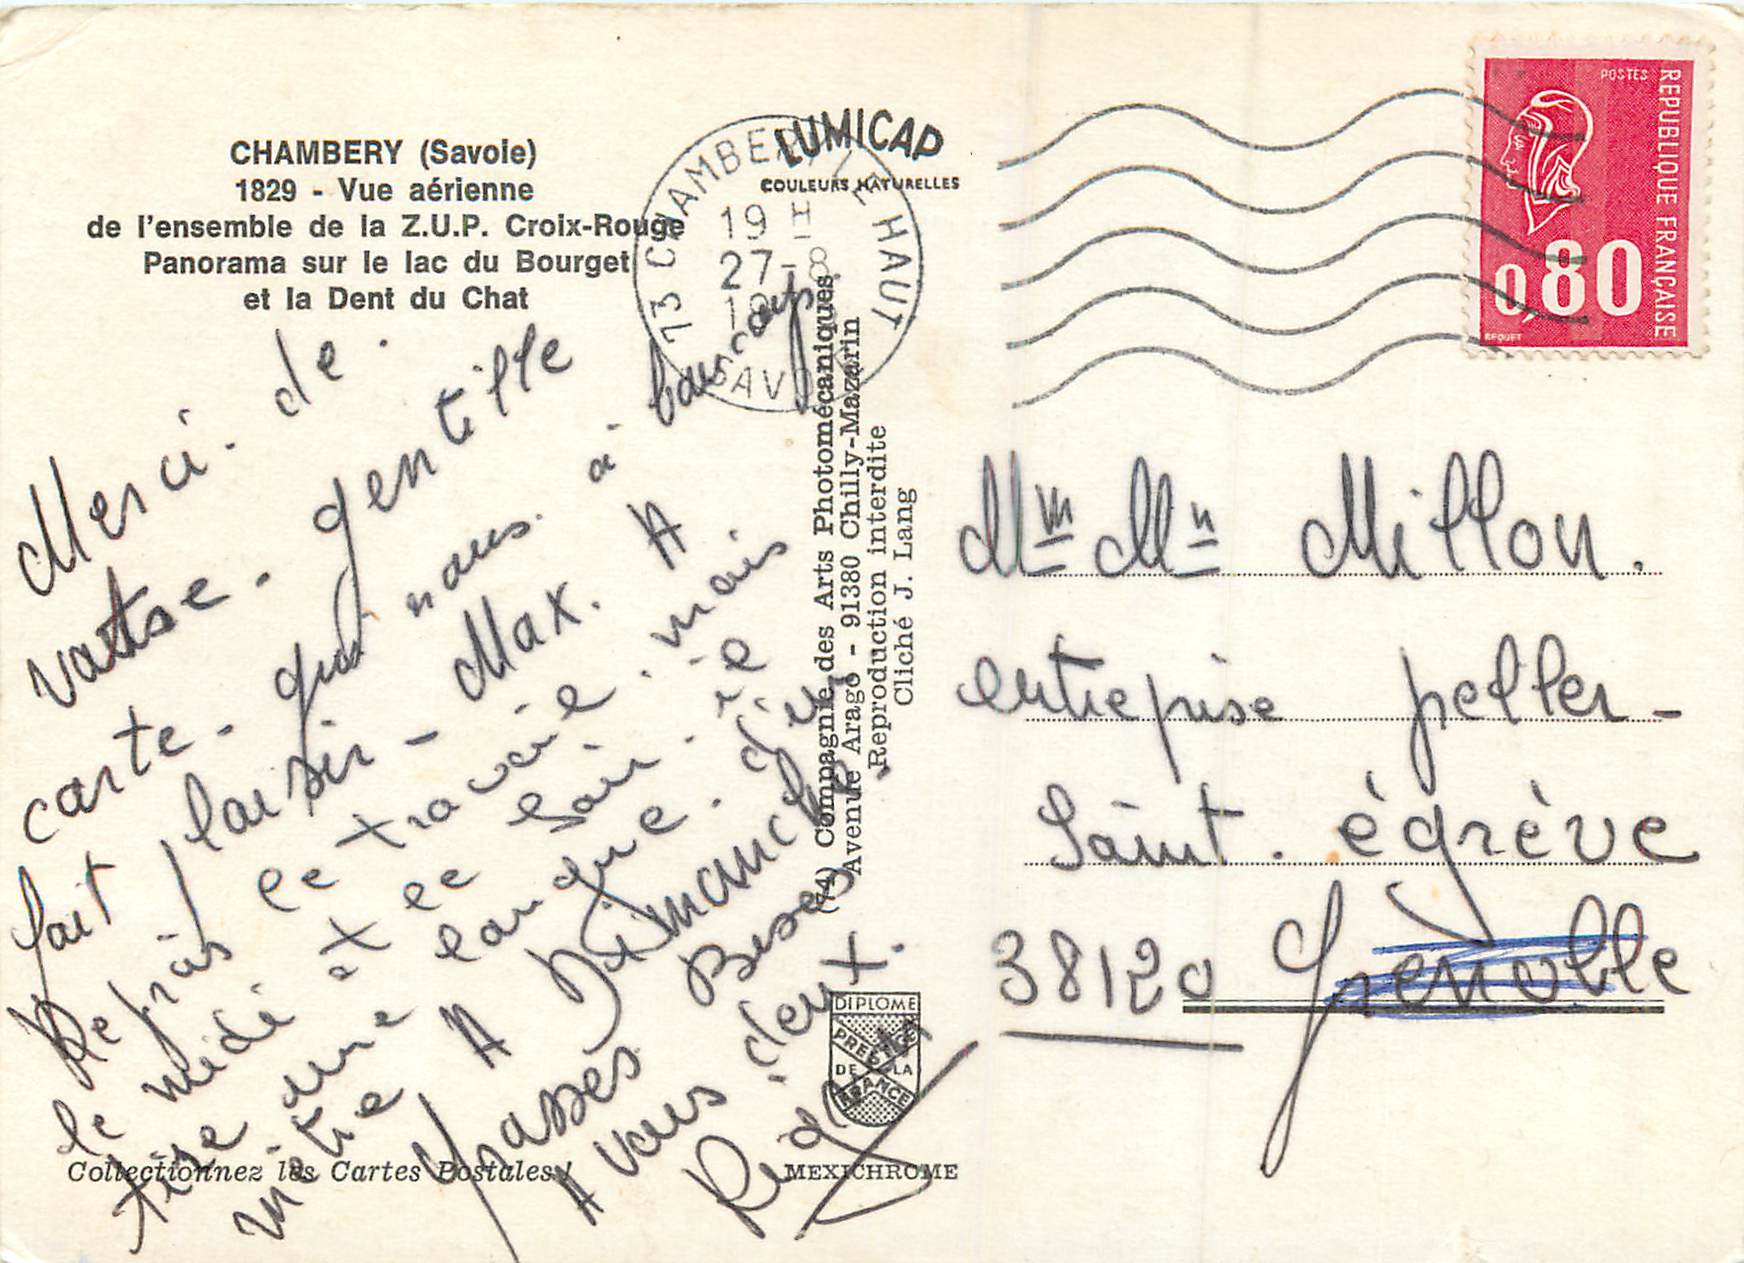 CHAMBERY (Savoie)
1829 - Vue aérienne
de l'ensemble de la Z.U.P. Croix-Rouge
Panorama sur le lac du Bourget
et la Dent du Chat
LUMICAP
COULEURS NATURELLES
73 CHAMBERY LE HAUT
19 H
27-8
19
SAVOIE
POSTES
REPUBLIQUE FRANÇAISE
0,80
BEQUET
Merci. de.
votre. gentille
carte. qui nous. a beaucoup.
fait plaisir - Max. A
Repris le travail. mais
le midi et le soir. il
tire une langue. d'un
mètre A Dimanche.
grosses Bises
A vous deux.
(74) Compagnie des Arts Photomécaniques.
Avenue Arago - 91380 Chilly-Mazarin
Reproduction interdite
Cliché J. Lang
DIPLOME
PRESTIGE
DE LA
FRANCE
Collectionnez les Cartes Postales!
MEXICHROME
Mm Mn Millon.
entreprise peller -
Saint. égrève
38120 Grenoble